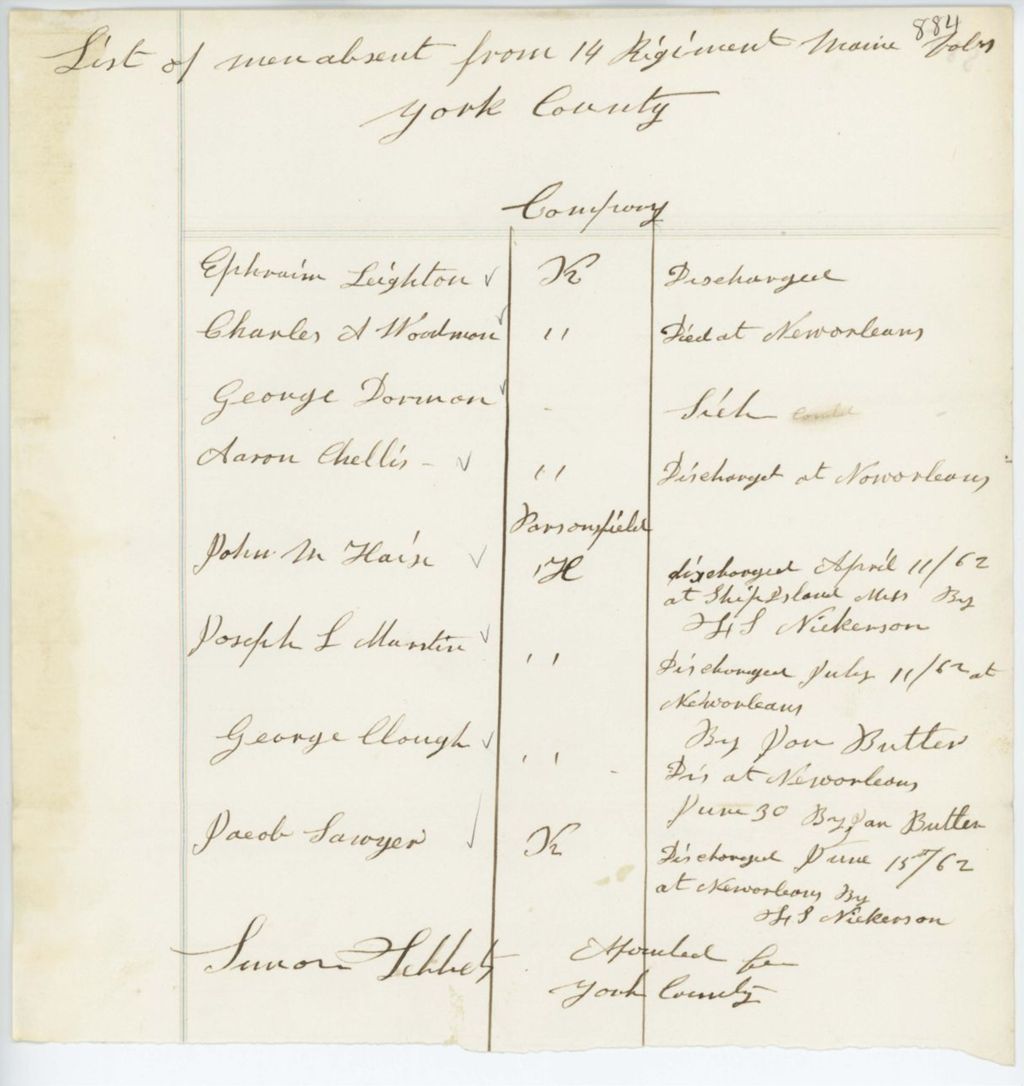 884
List of men absent from 14 Regiment Maine Vols
York County
Company
Ephraim Leighton ✓ K Discharged
Charles A Woodman ✓ " Died at Neworleans
George Dorman ✓ Sick
Aaron Chellis - ✓ " Discharged at Noworleans
Parsonsfield
John M Haise ✓ H discharged April 11/62
at Ship Island Miss By
H S Nickerson
Joseph L Marstin ✓ " Discharged July 11/62 at
Neworleans
George Clough ✓ By Jan Butler
" Dis at Neworleans
June 30 By Jan Butler
Jacob Sawyer ✓ K Discharged June 15th/62
at Neworleans By
H S Nickerson
Simon Tebbets
York County